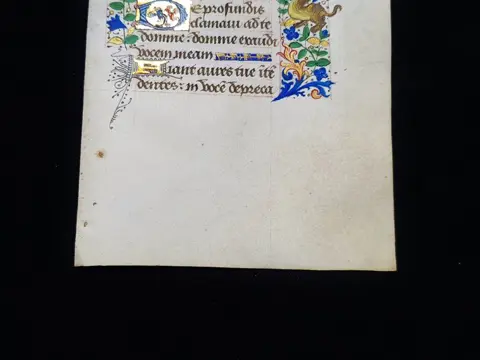 E profundis
clamavi ad te
domine: domine exaudi
vocem meam
Fiant aures tue ītē
dentes: in vocē depreca